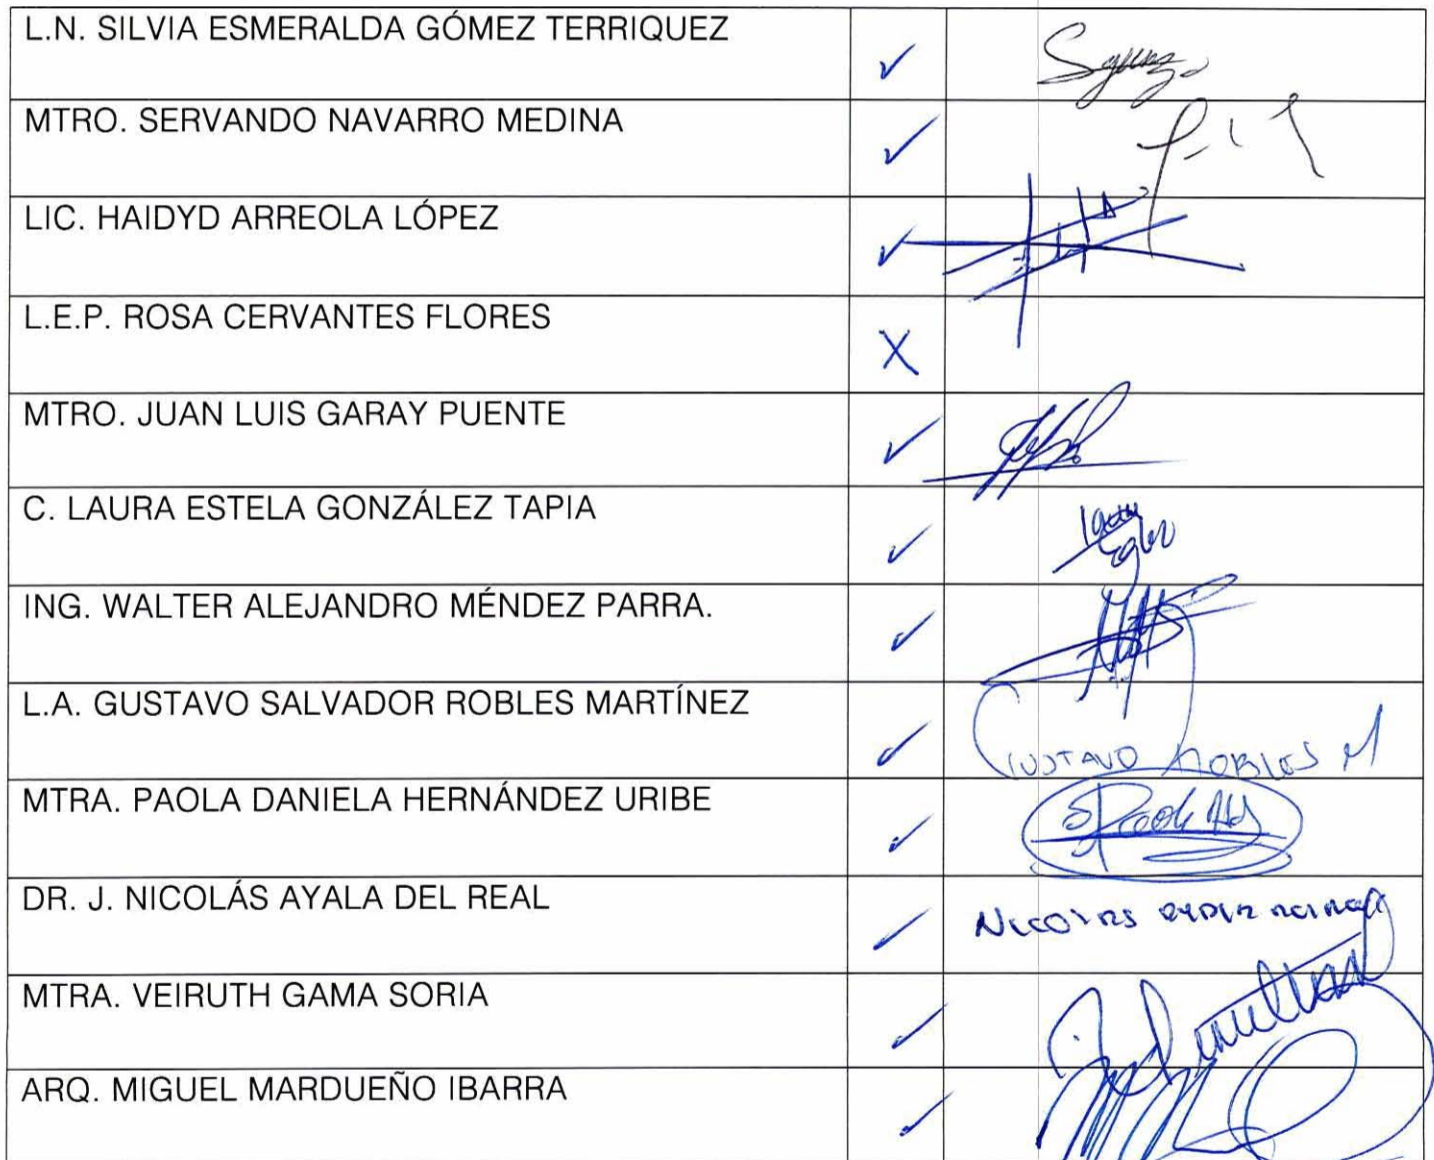 L.N. SILVIA ESMERALDA GÓMEZ TERRIQUEZ ✓
MTRO. SERVANDO NAVARRO MEDINA ✓
LIC. HAIDYD ARREOLA LÓPEZ ✓
L.E.P. ROSA CERVANTES FLORES X
MTRO. JUAN LUIS GARAY PUENTE ✓
C. LAURA ESTELA GONZÁLEZ TAPIA ✓
ING. WALTER ALEJANDRO MÉNDEZ PARRA. ✓
L.A. GUSTAVO SALVADOR ROBLES MARTÍNEZ ✓ GUSTAVO ROBLES M
MTRA. PAOLA DANIELA HERNÁNDEZ URIBE ✓
DR. J. NICOLÁS AYALA DEL REAL ✓
MTRA. VEIRUTH GAMA SORIA ✓
ARQ. MIGUEL MARDUEÑO IBARRA ✓